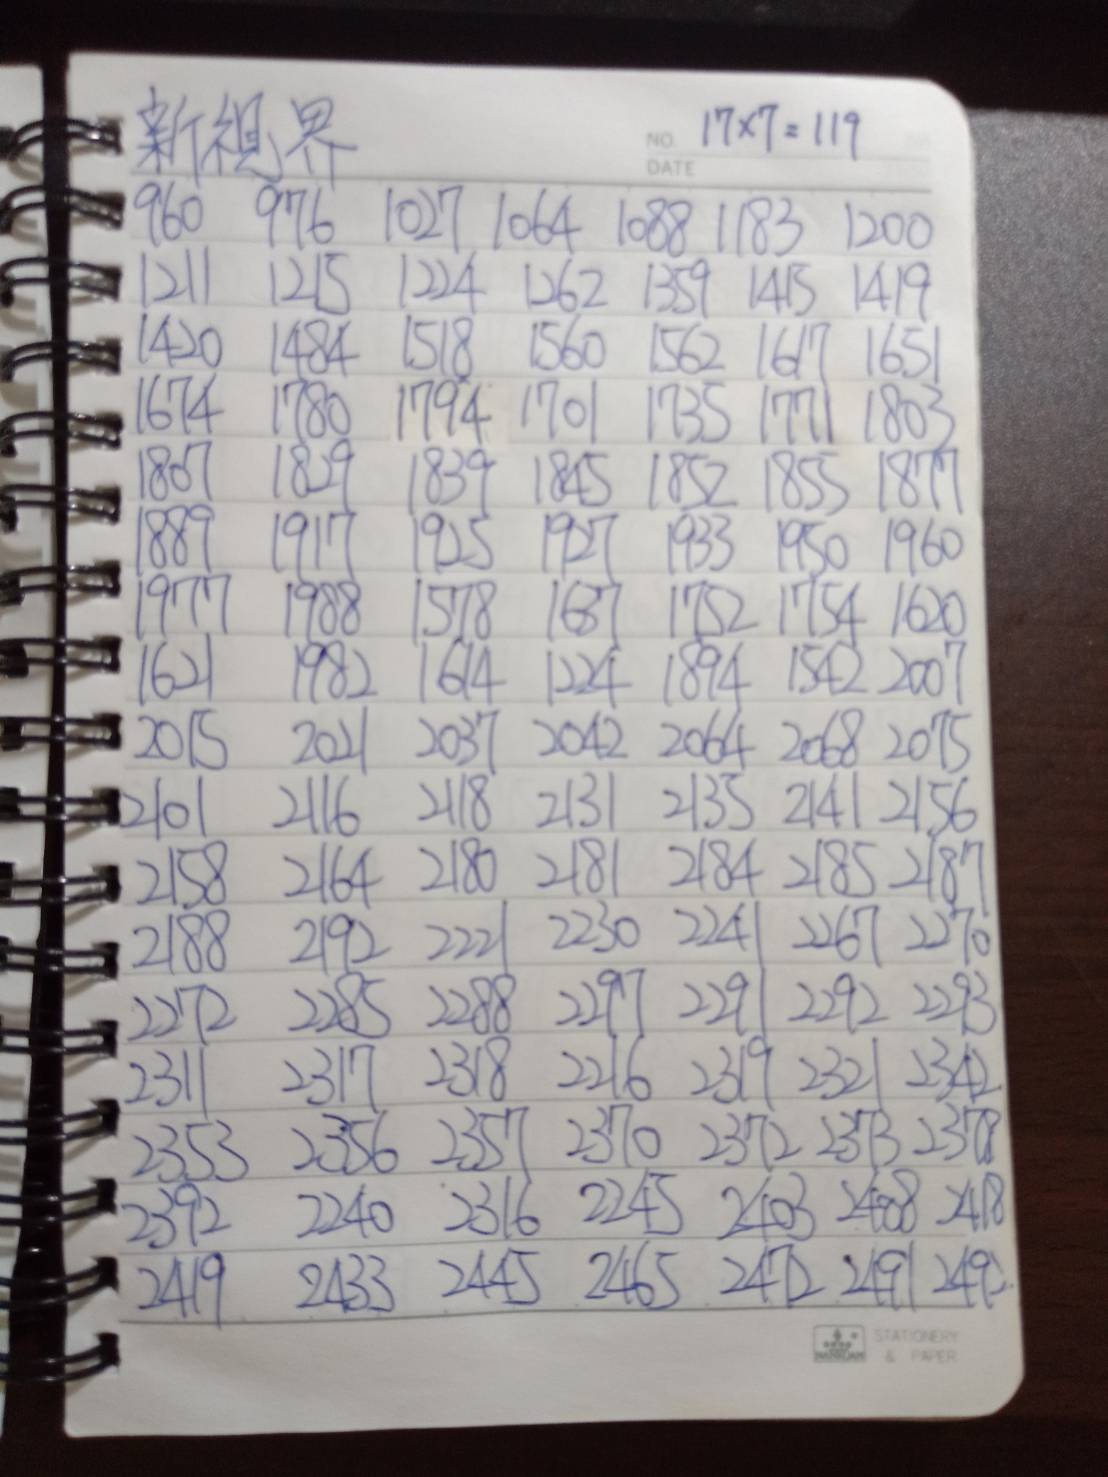 新視界
NO. 17×7=119
DATE
960 976 1027 1064 1088 1183 1200
1211 1215 1224 1262 1359 1415 1419
1420 1484 1518 1560 1562 1617 1651
1674 1780 1794 1701 1735 1771 1803
1807 1829 1839 1845 1852 1855 1877
1889 1917 1925 1927 1933 1950 1960
1977 1988 1578 1637 1752 1754 1620
1621 1982 1614 1224 1894 1542 2007
2015 2021 2037 2042 2064 2068 2075
2101 2116 2118 2131 2135 2141 2156
2158 2164 2180 2181 2184 2185 2187
2188 2192 2221 2230 2241 2267 2270
2272 2285 2288 2297 2291 2292 2293
2311 2317 2318 2216 2319 2321 2342
2353 2356 2357 2370 2372 2373 2378
2392 2240 2316 2245 2403 2408 2418
2419 2433 2445 2465 2472 2491 2492
STATIONERY
& PAPER